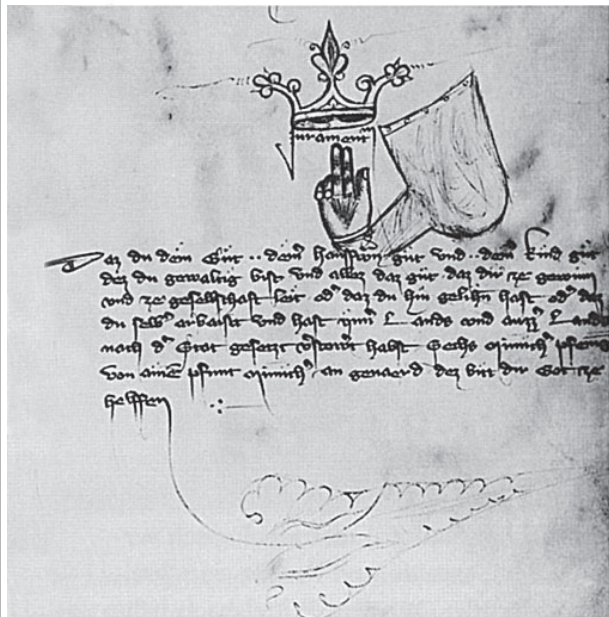 Jurament
Daz du dein Gůt .. deinr hausfrawn gůt und .. deinr kind gůt
dez du gewaltig bist und allez daz gůt daz dir ze gewinn
und ze geselleschaft leit od daz du hin gelihn hast od daz
du selb arbaitst und hast inner Lands und auzz Lands
nach d Stat gesetzt habst Sechs münich pfenn
von ainē pfunt münich an genaerd dez bitt dir Got ze
helffen